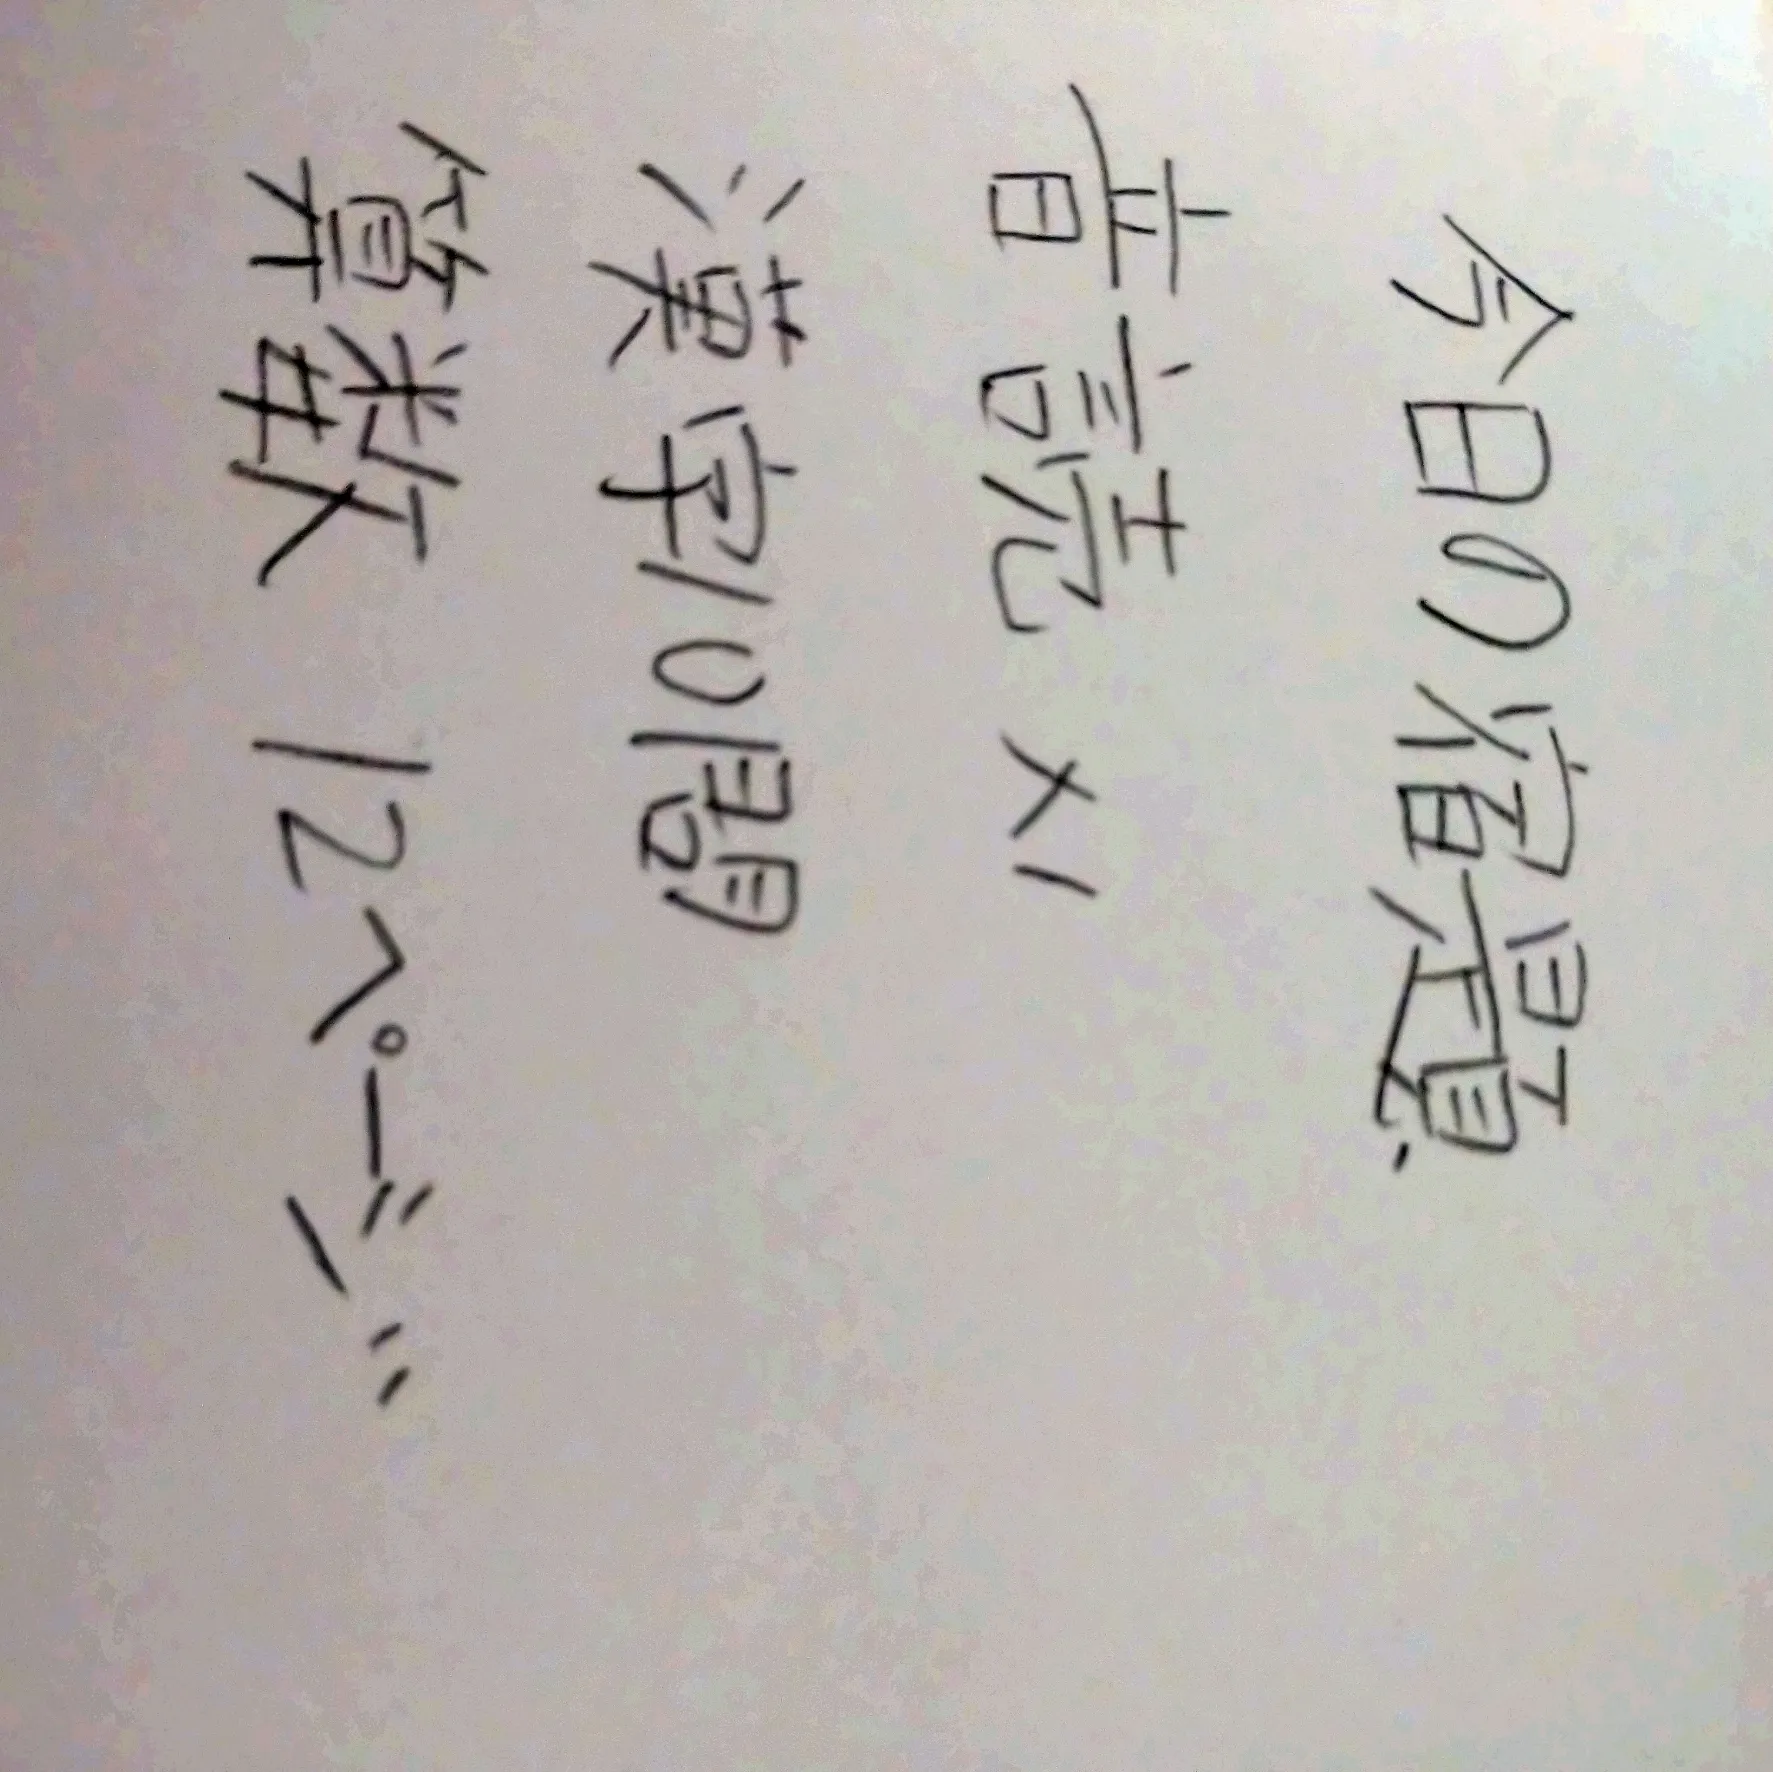 今日の宿題
音読 x1
漢字10問
算数 12ページ